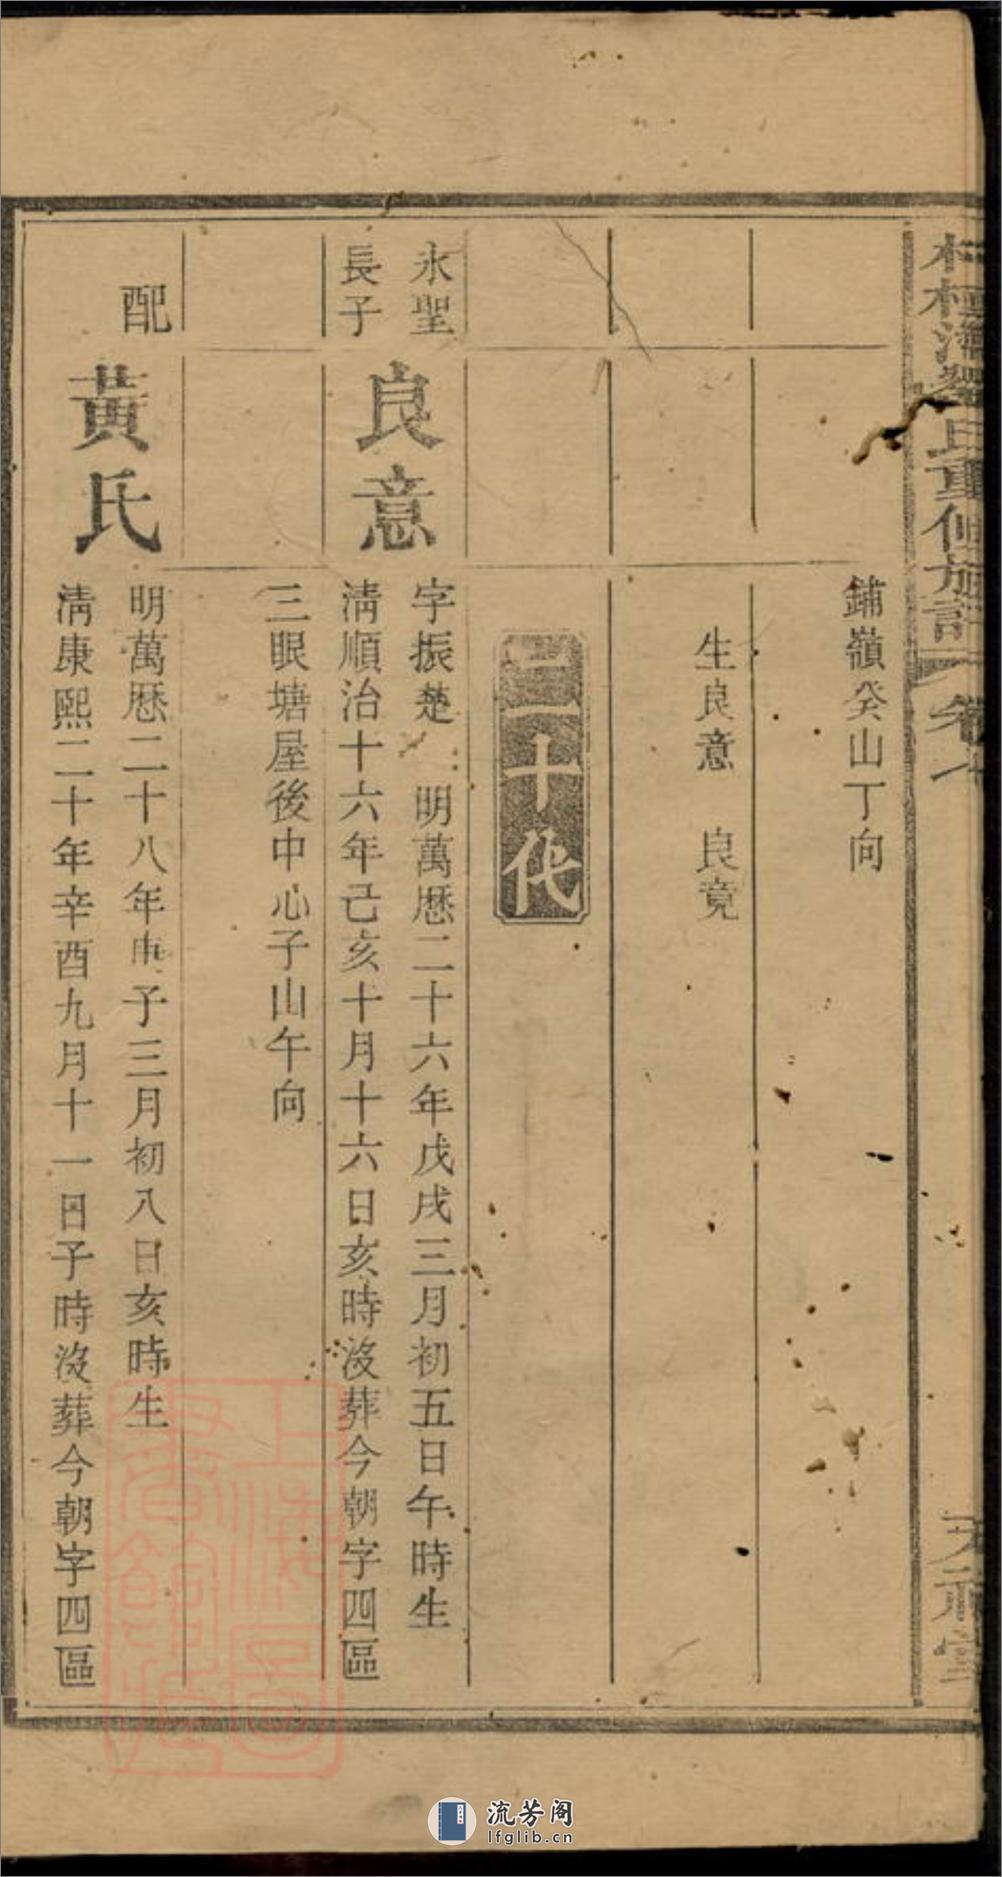 氏重修族譜
卷七
鋪嶺癸山丁向
生良意　良竟
二十代
永聖
長子
良意
字振楚　明萬曆二十六年戊戌三月初五日午時生
清順治十六年己亥十月十六日亥時沒葬今朝字四區
三眼塘屋後中心子山午向
配
黃氏
明萬曆二十八年庚子三月初八日亥時生
清康熙二十年辛酉九月十一日子時沒葬今朝字四區
上海圖書館藏
流芳阁
lfglib.cn